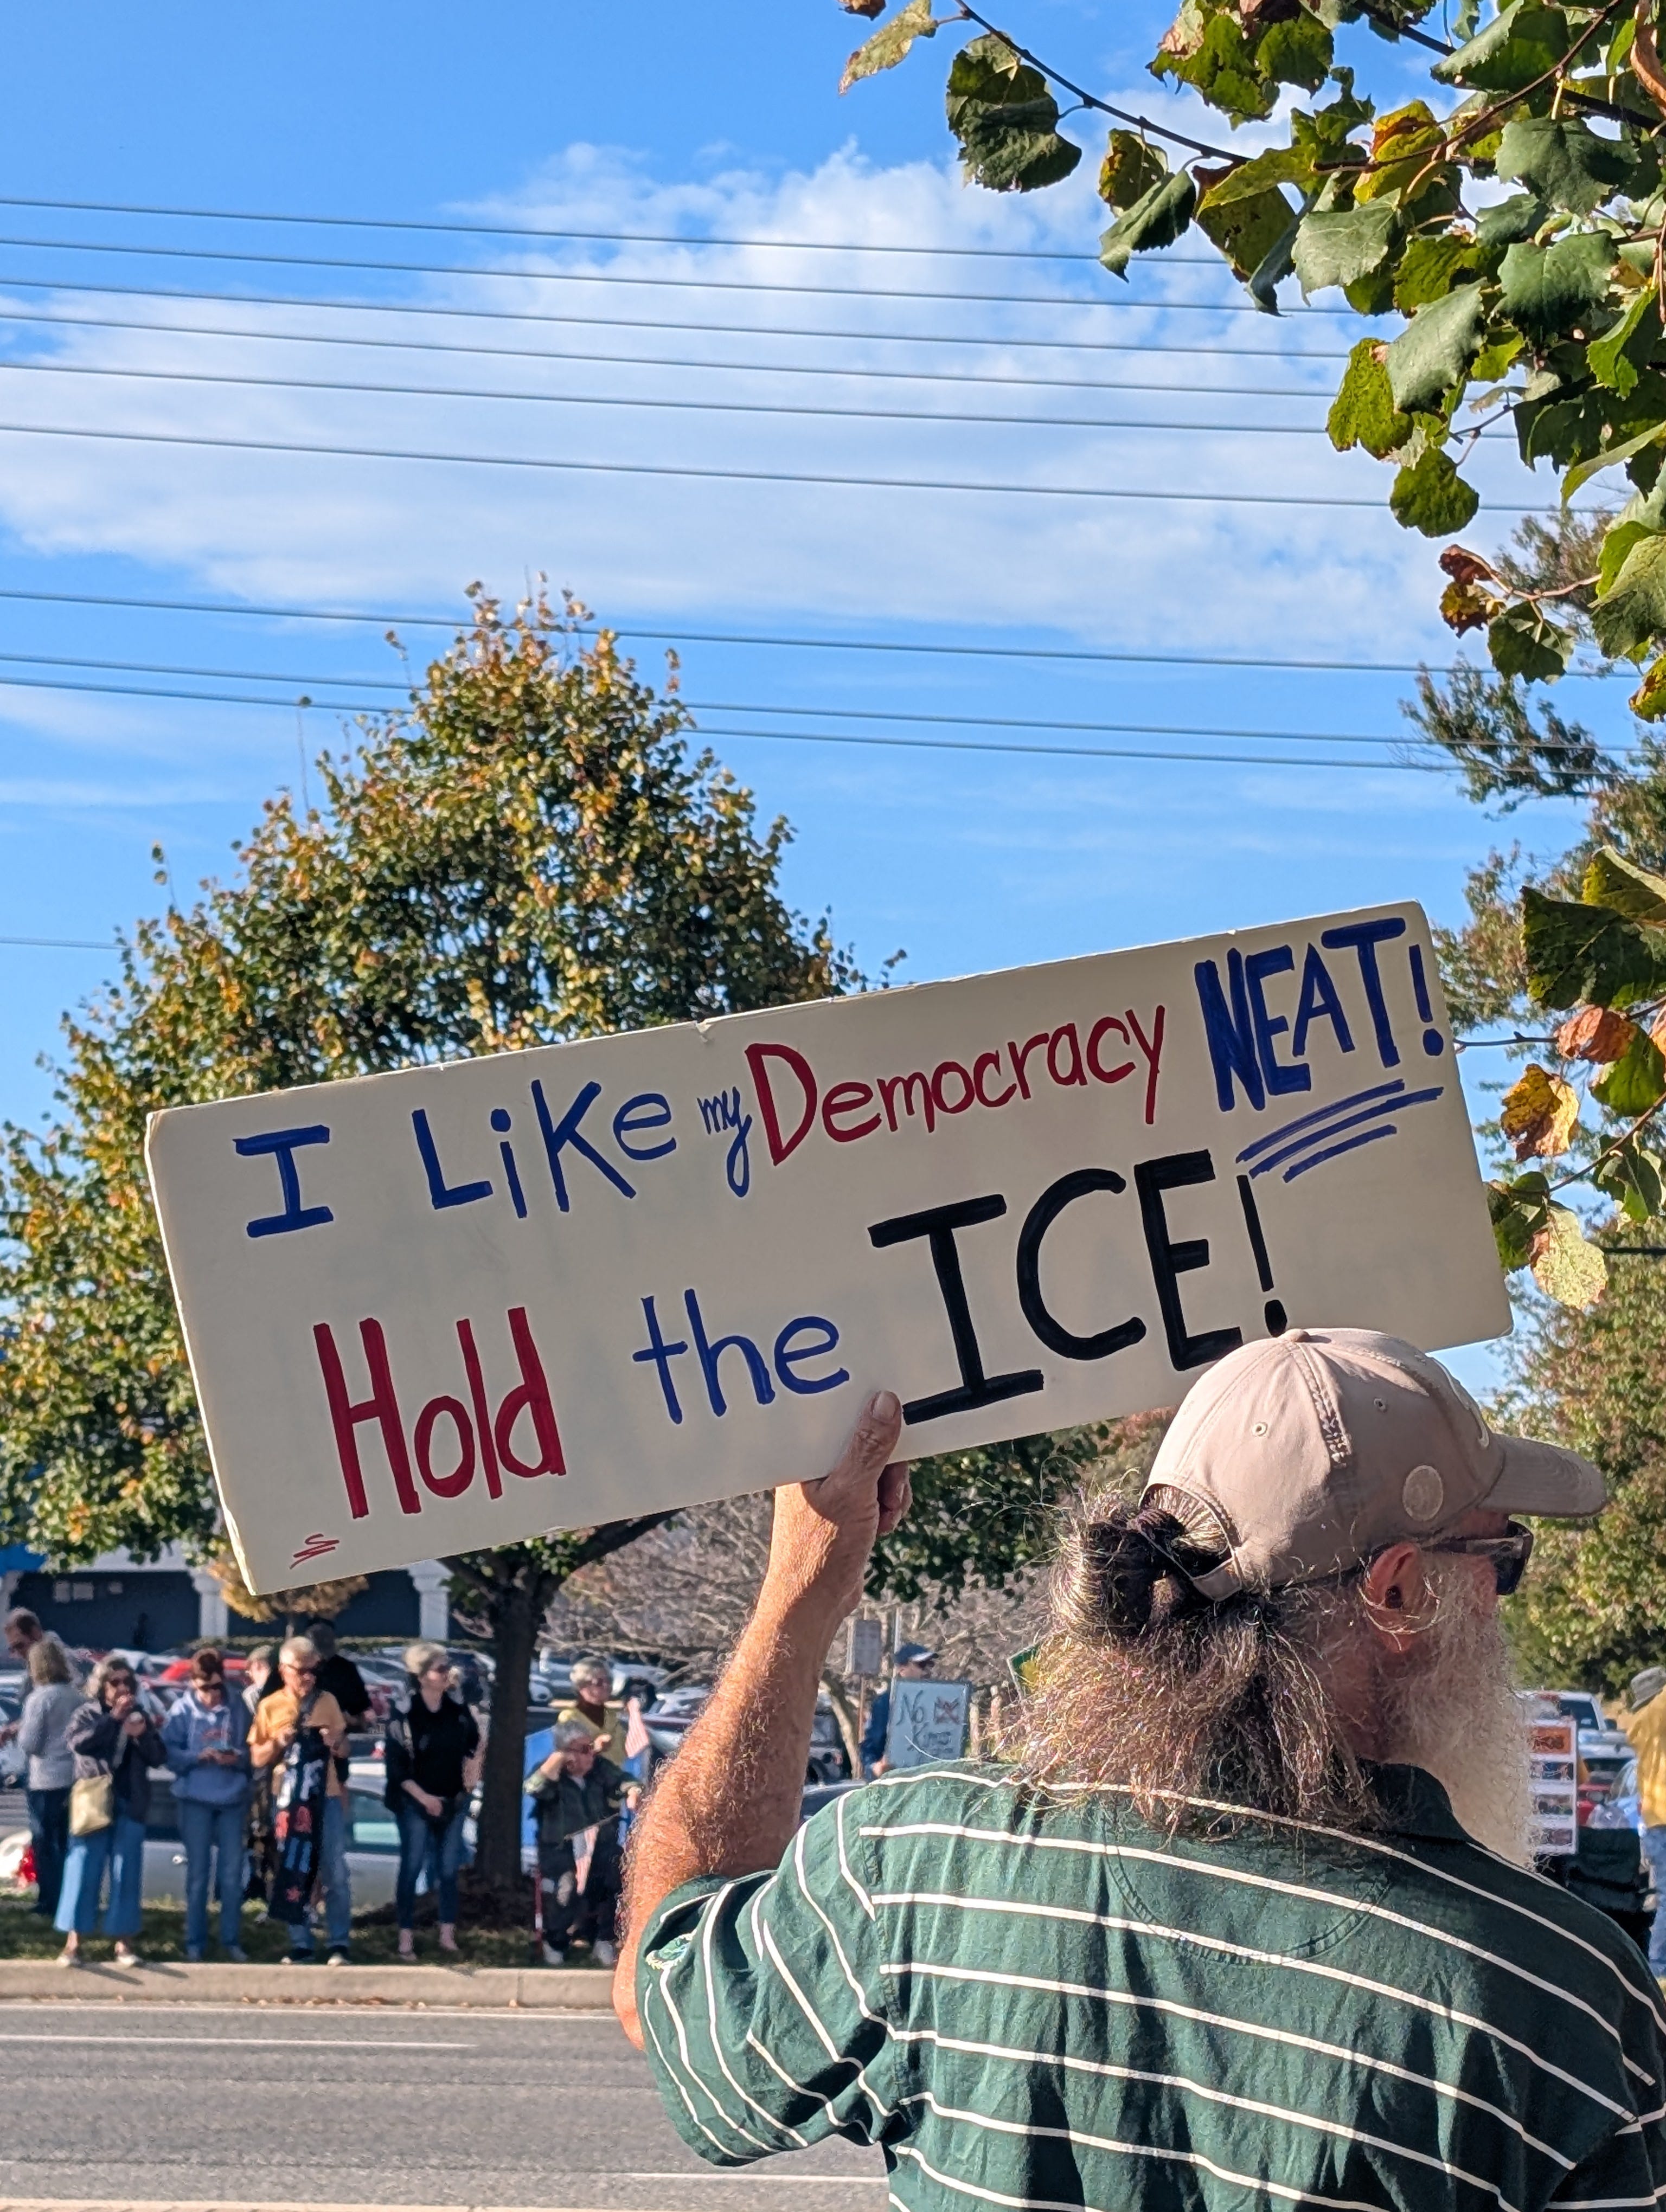 I Like my Democracy NEAT!
Hold the ICE!
No